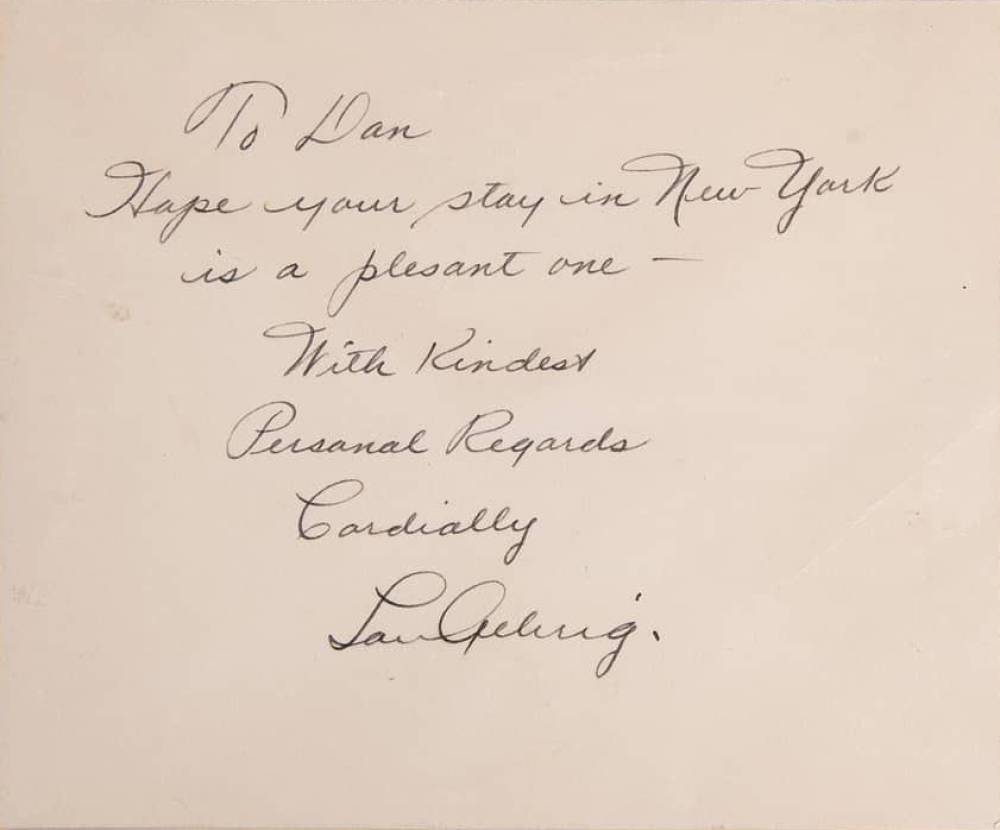 To Dan
Hope your stay in New York
is a plesant one —
With Kindest
Personal Regards
Cordially
Lou Gehrig.